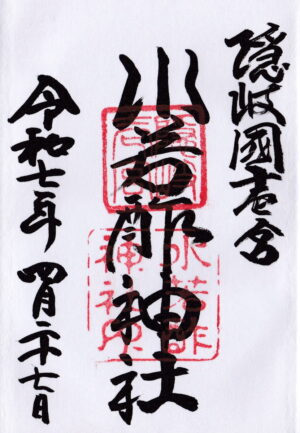 隠岐國壱宮
水若酢神社
令和七年 四月二十七日